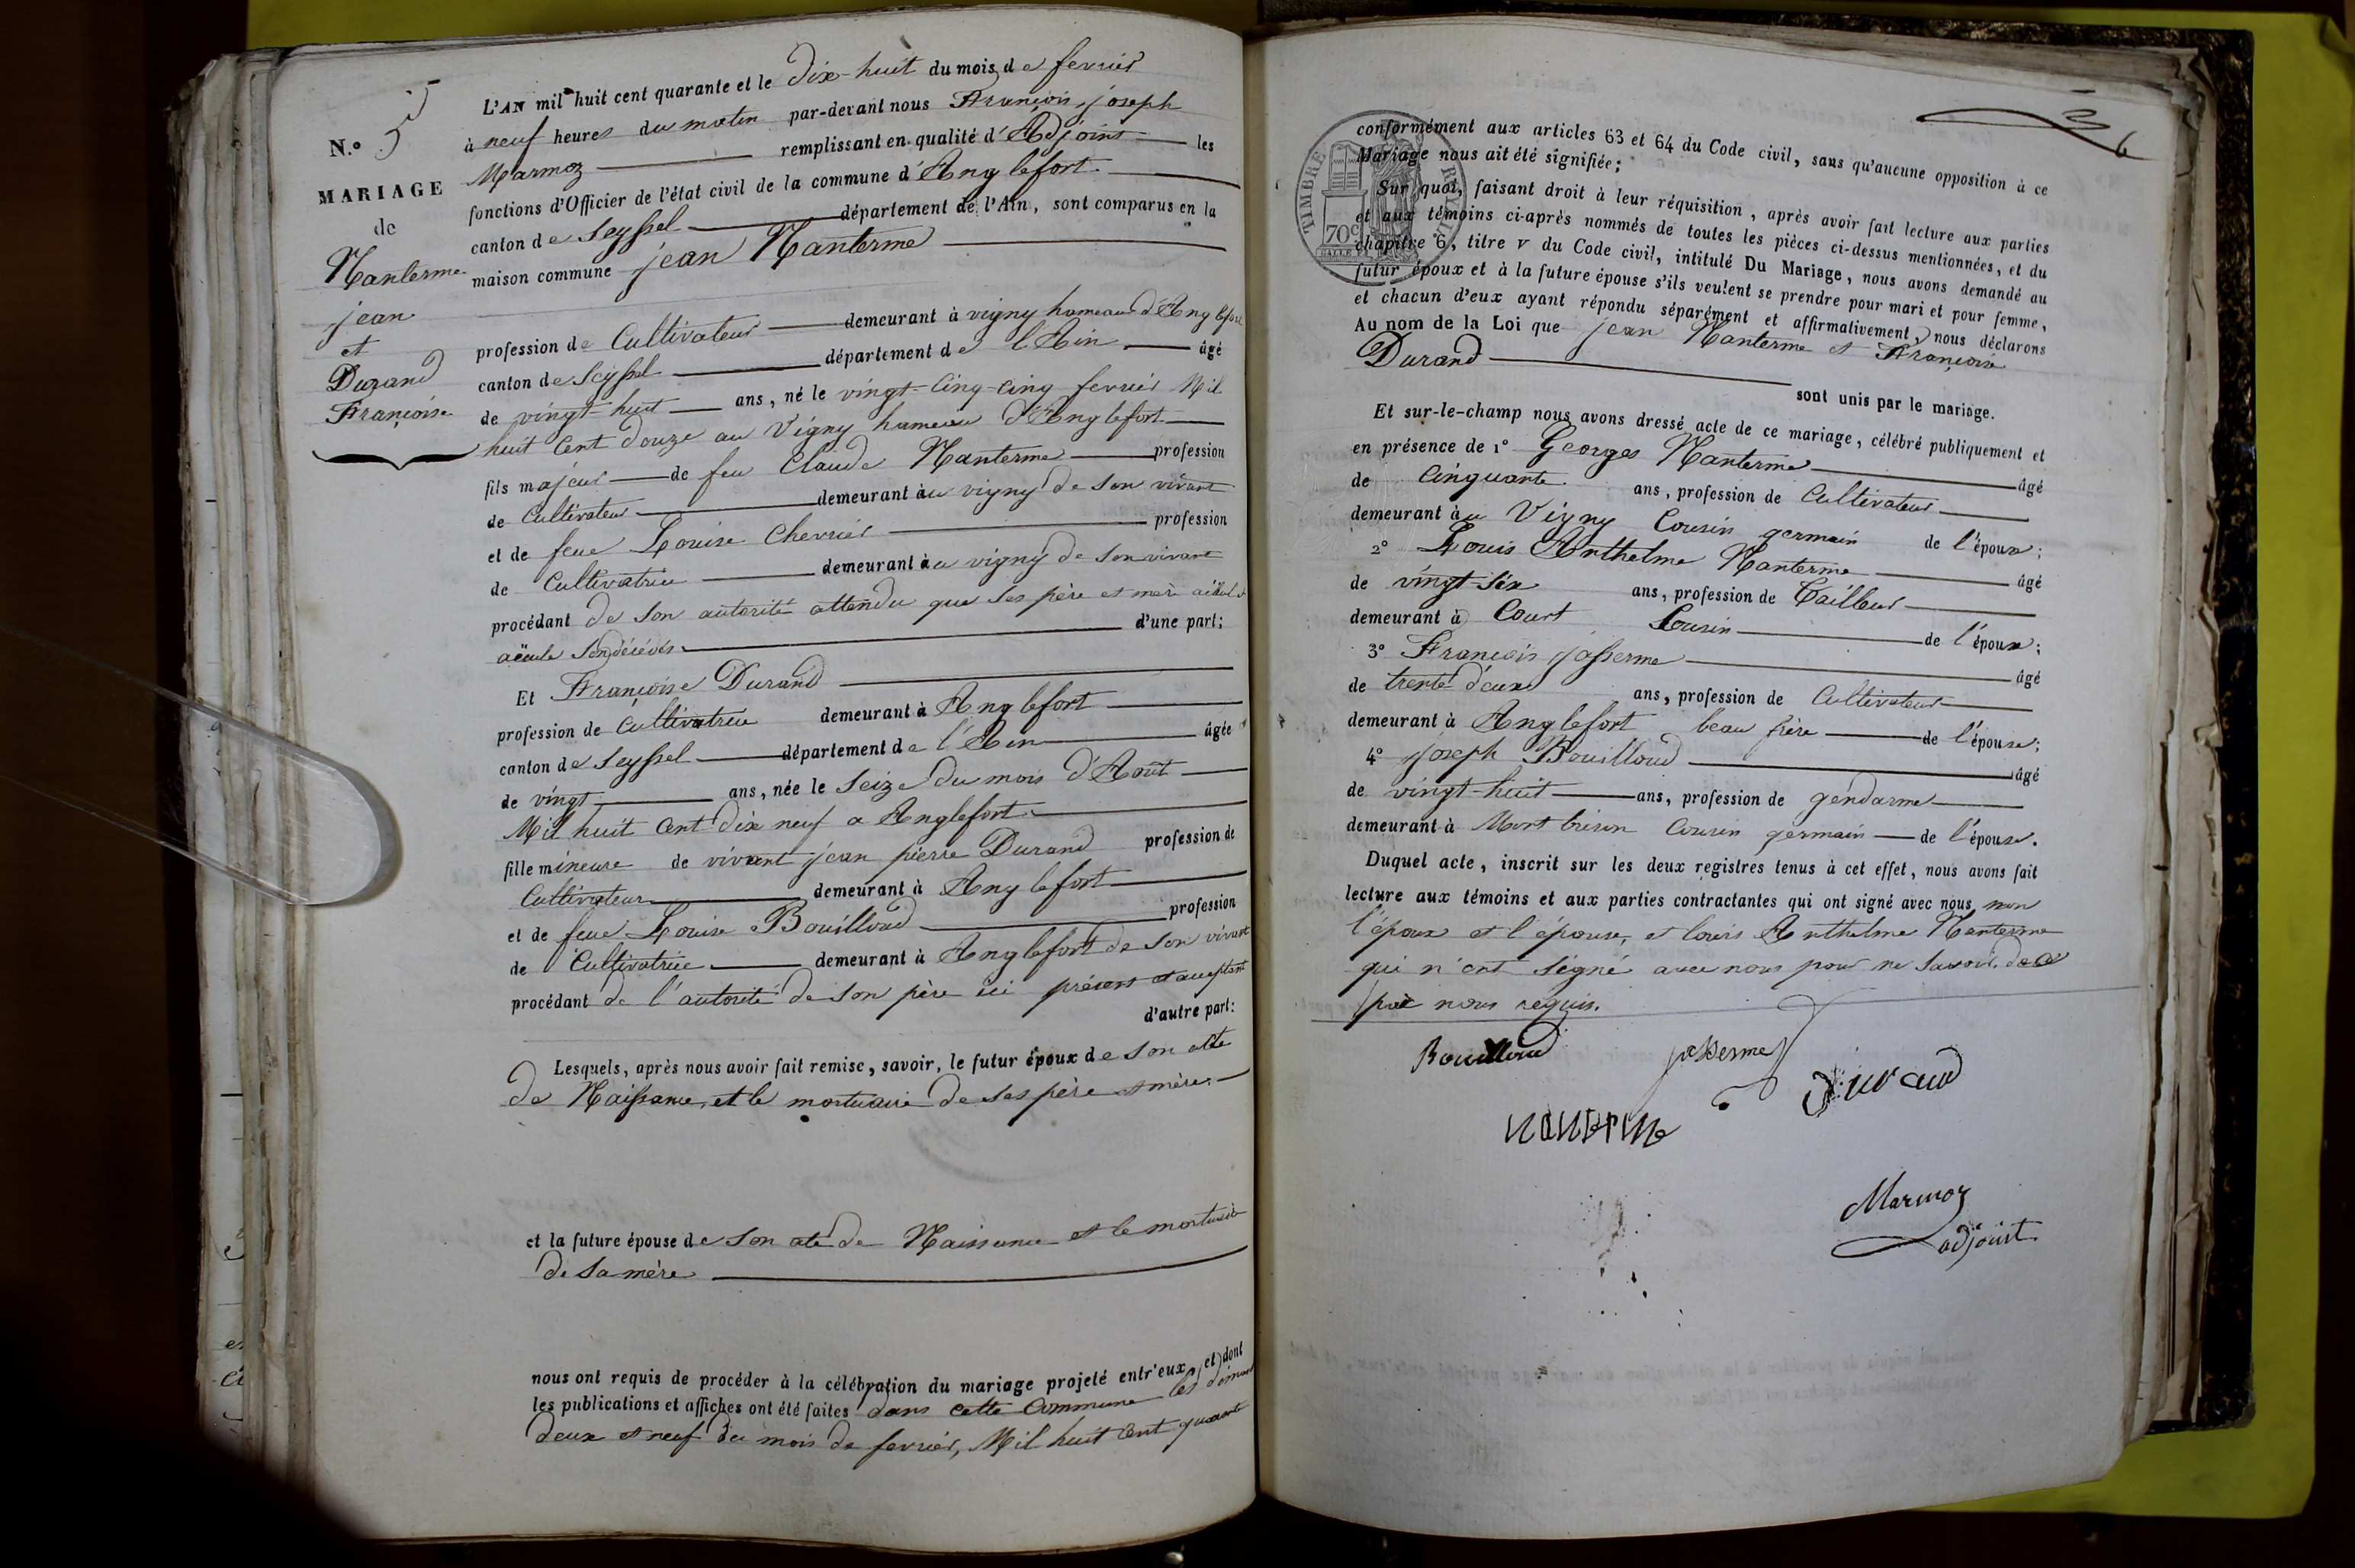 N.º 5
MARIAGE
de
Nanterme
jean
et
Durand
Françoise
L'AN mil huit cent quarante et le dix-huit du mois de fevrier
à neuf heures du matin par-devant nous François, joseph
Marmoz remplissant en qualité d'Adjoint les
fonctions d'Officier de l'état civil de la commune d'Anglefort
canton de Seyssel département de l'Ain, sont comparus en la
maison commune jean Nanterme
profession de Cultivateur demeurant à vigny hameau d'Anglefort
canton de Seyssel département de l'Ain âgé
de vingt-huit ans, né le vingt-Cinq-cinq fevrier Mil
huit Cent douze au Vigny hameau d'Anglefort
fils majeur de feu Claude Nanterme profession
de Cultivateur demeurant àu vigny de son vivant
et de feue Louise Chevrier profession
de Cultivatrice demeurant àu vigny de son vivant
procédant de son autorité attendu que ses père et mere aïeul et
aïeule son décédés d'une part;
Et Françoise Durand
profession de Cultivatrice demeurant à Anglefort
canton de Seyssel département de l'Ain âgée
de vingt ans, née le Seize du mois d'Aout
Mil huit Cent dix neuf a Anglefort
fille mineure de vivant jean pierre Durand profession de
Cultivateur demeurant à Anglefort
et de feue Louise Bouilloud profession
de Cultivatrice demeurant à Anglefort de son vivant
procédant de l'autorité de son père ici présent et acceptant
d'autre part:
Lesquels, après nous avoir fait remise, savoir, le futur époux de son acte
de Naissance, et le mortuaire de ses père et mère.
et la future épouse de son acte de Naissance et le mortuaire
de sa mère
nous ont requis de procéder à la célébration du mariage projeté entr'eux, et dont
les publications et affiches ont été faites dans cette Commune les diman
deux et neuf du mois de fevrier, Mil huit Cent quarante
36
TIMBRE ROYAL
70c
conformément aux articles 63 et 64 du Code civil, sans qu'aucune opposition à ce
Mariage nous ait été signifiée;
Sur quoi, faisant droit à leur réquisition, après avoir fait lecture aux parties
et aux témoins ci-après nommés de toutes les pièces ci-dessus mentionnées, et du
chapitre 6, titre V du Code civil, intitulé Du Mariage, nous avons demandé au
futur époux et à la future épouse s'ils veulent se prendre pour mari et pour femme,
et chacun d'eux ayant répondu séparément et affirmativement, nous déclarons
Au nom de la Loi que jean Nanterme et Françoise
Durand
sont unis par le mariage.
Et sur-le-champ nous avons dressé acte de ce mariage, célébré publiquement et
en présence de 1º Georges Nanterme âgé
de Cinquante ans, profession de Cultivateur
demeurant àu Vigny Cousin germain de l'époux;
2º Louis Anthelme Nanterme âgé
de vingt-six ans, profession de Tailleur
demeurant à Court Cousin de l'époux;
3º François jasserme âgé
de trente deux ans, profession de Cultivateur
demeurant à Anglefort beau frère de l'épouse;
4º joseph Bouilloud âgé
de vingt-huit ans, profession de gendarme
demeurant à Montbrison Cousin germain de l'épouse.
Duquel acte, inscrit sur les deux registres tenus à cet effet, nous avons fait
lecture aux témoins et aux parties contractantes qui ont signé avec nous non
l'époux et l'épouse, et louis Anthelme Nanterme
qui n'ont signé avec nous pour ne savoir, de ce
par nous requis.
Bouilloud jasserme
Durand
Nanterme
Marmoz
adjoint